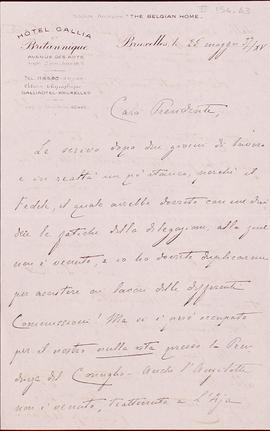 "THE BELGIAN HOME."
II 154.43
HÔTEL GALLIA
ET
Britannique
AVENUE DES ARTS
GALLIAOTEL-BRUXELLES
Bruxelles, le 25 maggio
Caro Presidente,
Le scrivo dopo due giorni di lavoro
e in realtà un po' stanco, perchè il
Fedele, il quale avrebbe dovuto con me divi
dere le fatiche della delegazione, alla quale
non è venuto, e io ho dovuto duplicarmi
per assistere ai lavori delle differenti
Commissioni! Ma mi è però occupato
per il nostro nulla osta presso la Pre
del Consiglio. Anche l'
non è venuto, trattenuto a L'Aja